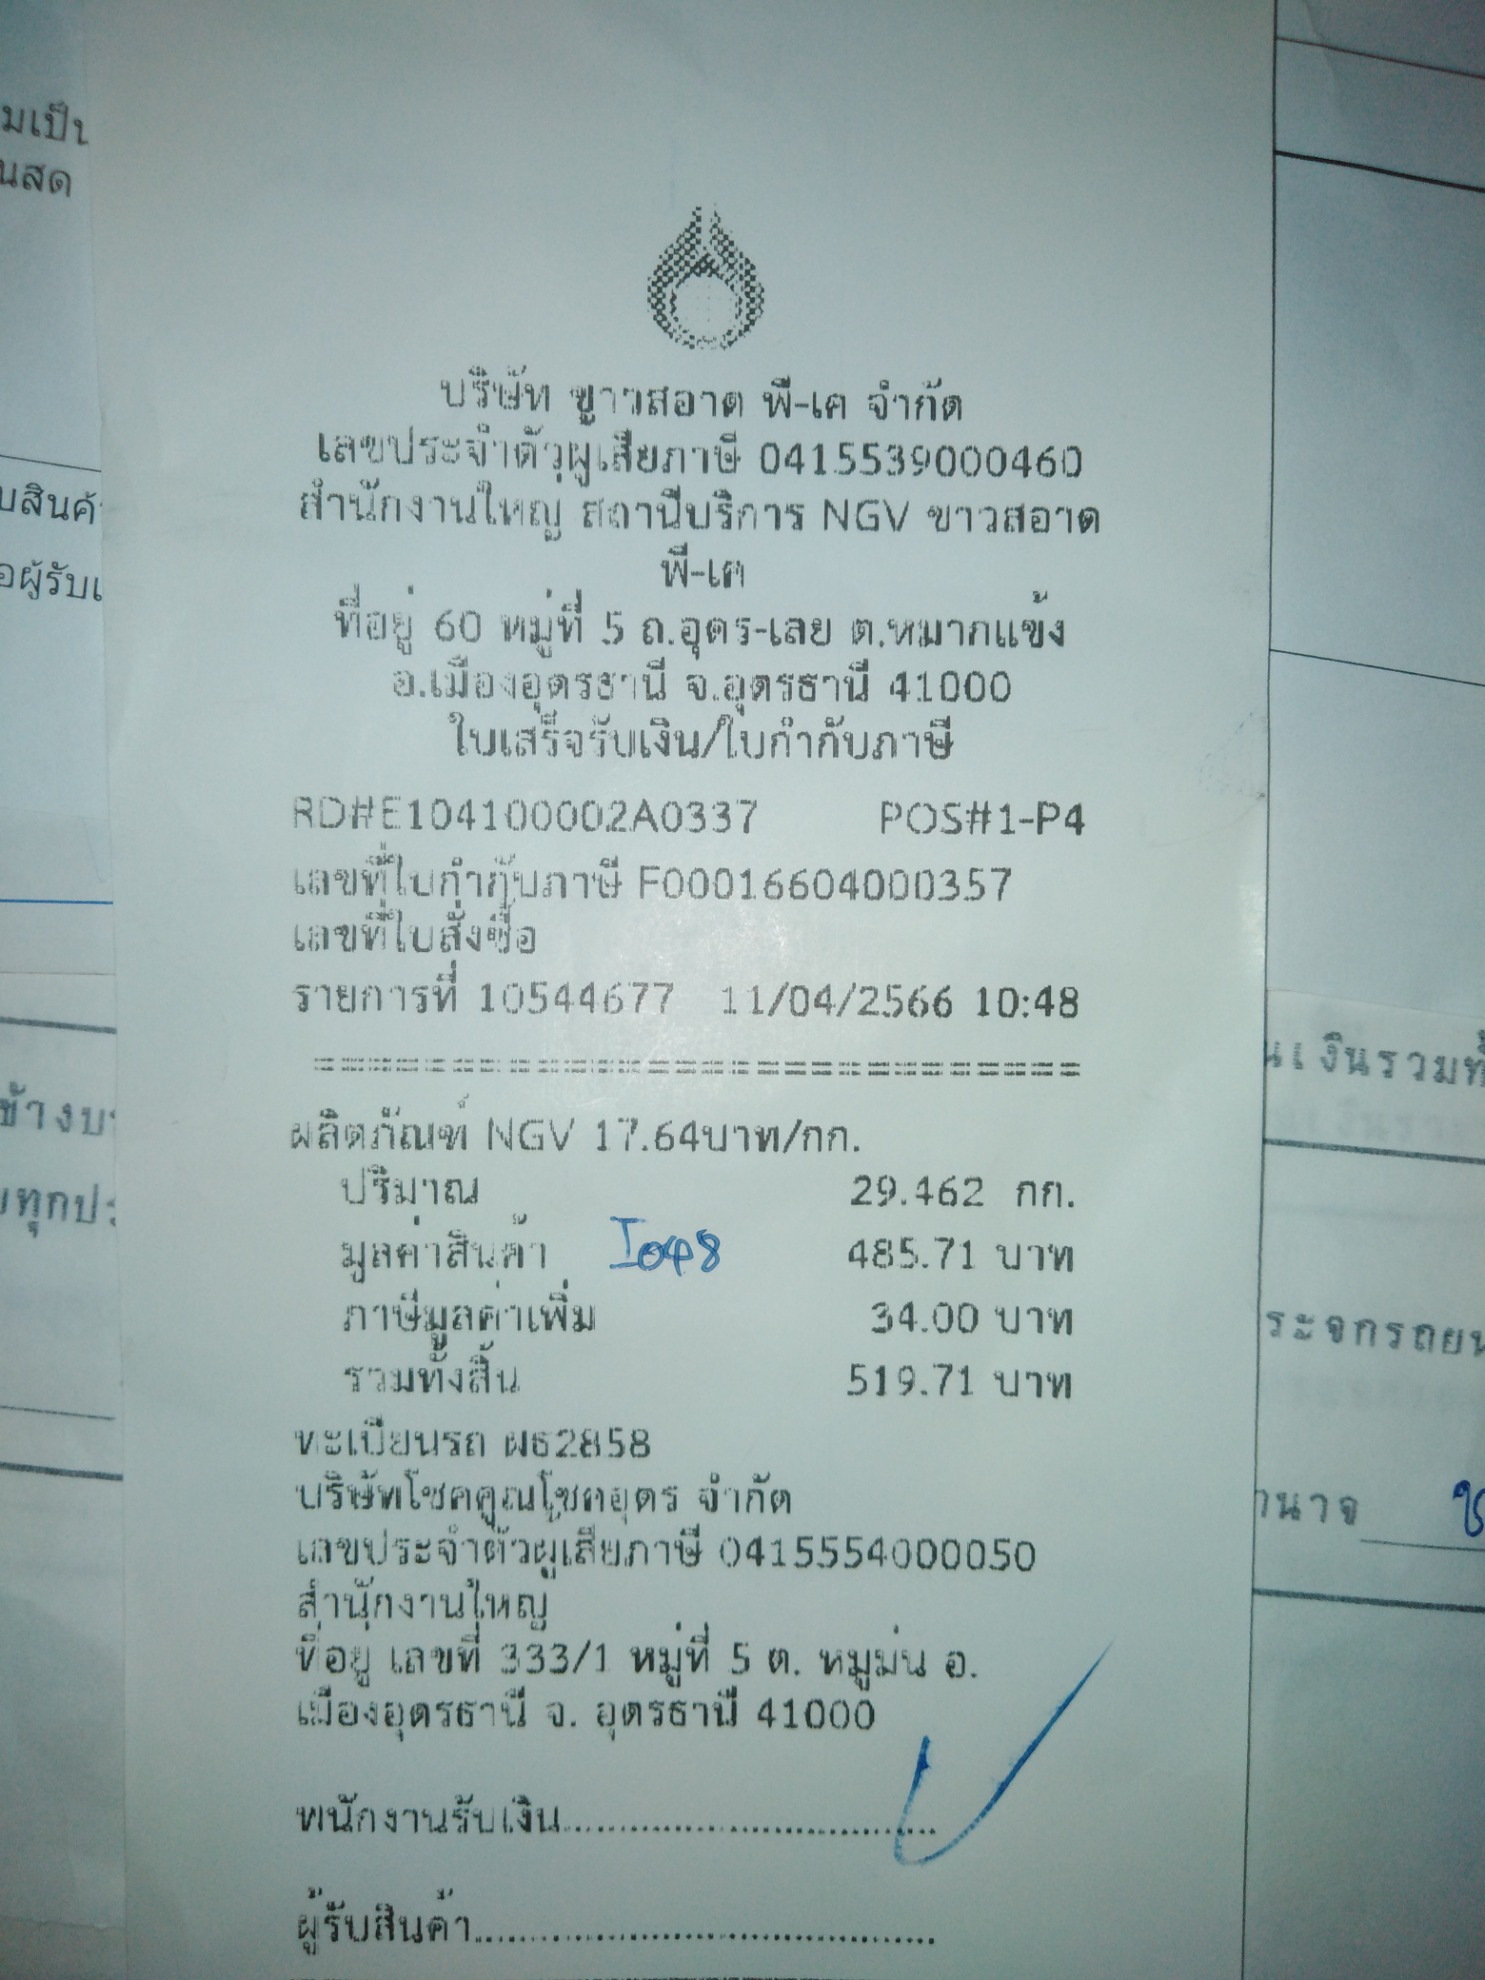 บริษัท ขาวสอาด พี-เค จำกัด
เลขประจำตัวผู้เสียภาษี 0415539000460
สำนักงานใหญ่ สถานีบริการ NGV ขาวสอาด
พี-เค
ที่อยู่ 60 หมู่ที่ 5 ถ.อุดร-เลย ต.หมากแข้ง
อ.เมืองอุดรธานี จ.อุดรธานี 41000
ใบเสร็จรับเงิน/ใบกำกับภาษี
RD#E104100002A0337 POS#1-P4
เลขที่ใบกำกับภาษี F00016604000357
เลขที่ใบสั่งซื้อ
รายการที่ 10544677 11/04/2566 10:48
ผลิตภัณฑ์ NGV 17.64บาท/กก.
ปริมาณ 29.462 กก.
มูลค่าสินค้า I048 485.71 บาท
ภาษีมูลค่าเพิ่ม 34.00 บาท
รวมทั้งสิ้น 519.71 บาท
ทะเบียนรถ ผธ2858
บริษัทโชคคูณโชคอุดร จำกัด
เลขประจำตัวผู้เสียภาษี 0415554000050
สำนักงานใหญ่
ที่อยู่ เลขที่ 333/1 หมู่ที่ 5 ต. หมูม่น อ.
เมืองอุดรธานี จ. อุดรธานี 41000
พนักงานรับเงิน..................................
ผู้รับสินค้า..........................................